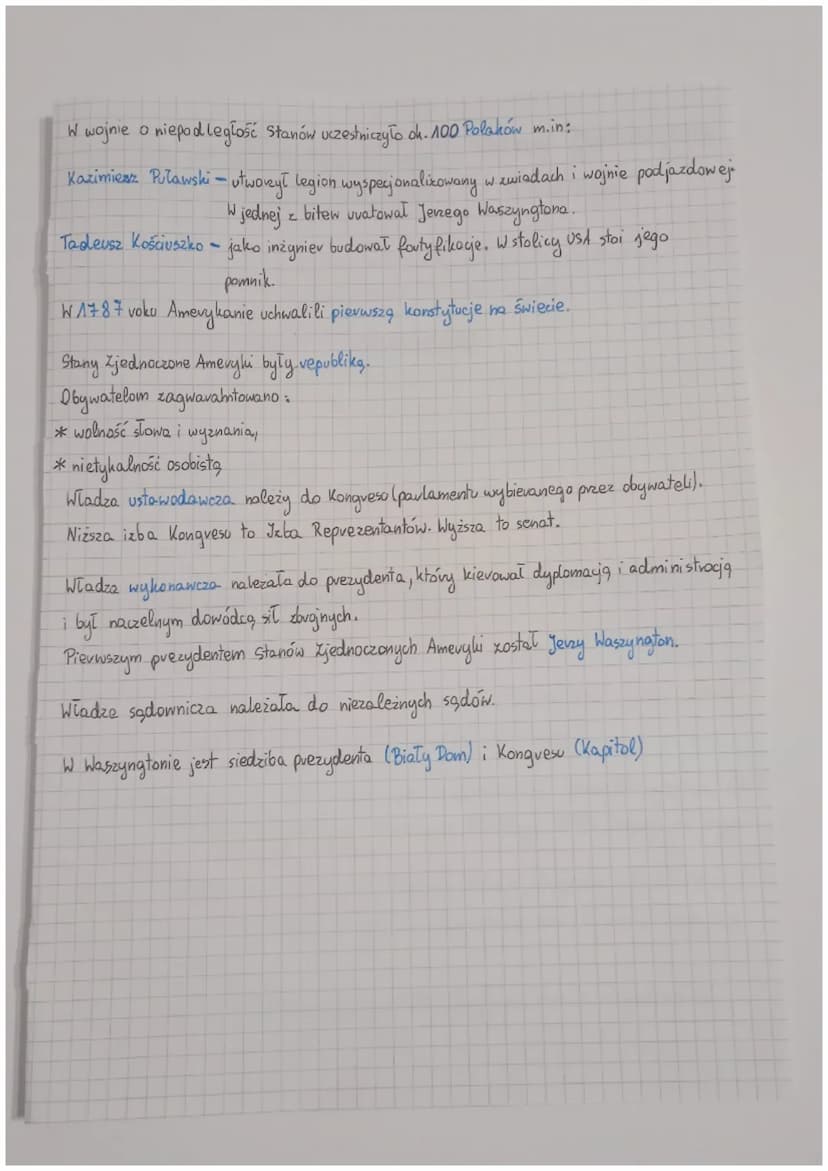 W wojnie o niepodległość Stanów uczestniczyło ok. 100 Polaków m.in:
Kazimierz Puławski – utworzył legion wyspecjonalizowany w zwiadach i wojnie podjazdowej.
W jednej z bitew uratował Jerzego Waszyngtona.
Tadeusz Kościuszko – jako inżynier budował fortyfikacje. W stolicy USA stoi jego
pomnik.
W 1787 roku Amerykanie uchwalili pierwszą konstytucje na świecie.
Stany Zjednoczone Ameryki były republiką.
Obywatelom zagwarantowano:
* wolność słowa i wyznania,
* nietykalność osobistą
Władza ustawodawcza należy do Kongresu (parlamentu wybieranego przez obywateli).
Niższa izba Kongresu to Izba Reprezentantów. Wyższa to senat.
Władza wykonawcza należała do prezydenta, który kierował dyplomacją i administracją
i był naczelnym dowódcą sił zbrojnych.
Pierwszym prezydentem Stanów Zjednoczonych Ameryki został Jerzy Waszyngton.
Władze sądownicza należała do niezależnych sądów.
W Waszyngtonie jest siedziba prezydenta (Biały Dom) i Kongresu (Kapitol)